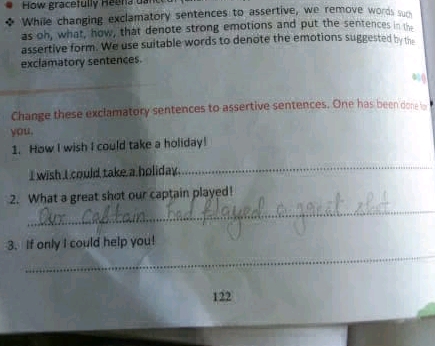 How gracefully Heena
❖ While changing exclamatory sentences to assertive, we remove words such
as oh, what, how, that denote strong emotions and put the sentences in the
assertive form. We use suitable words to denote the emotions suggested by the
exclamatory sentences.
Change these exclamatory sentences to assertive sentences. One has been done for
you.
1. How I wish I could take a holiday!
I wish I could take a holiday.
2. What a great shot our captain played!
Our captain had played a great shot
3. If only I could help you!
122